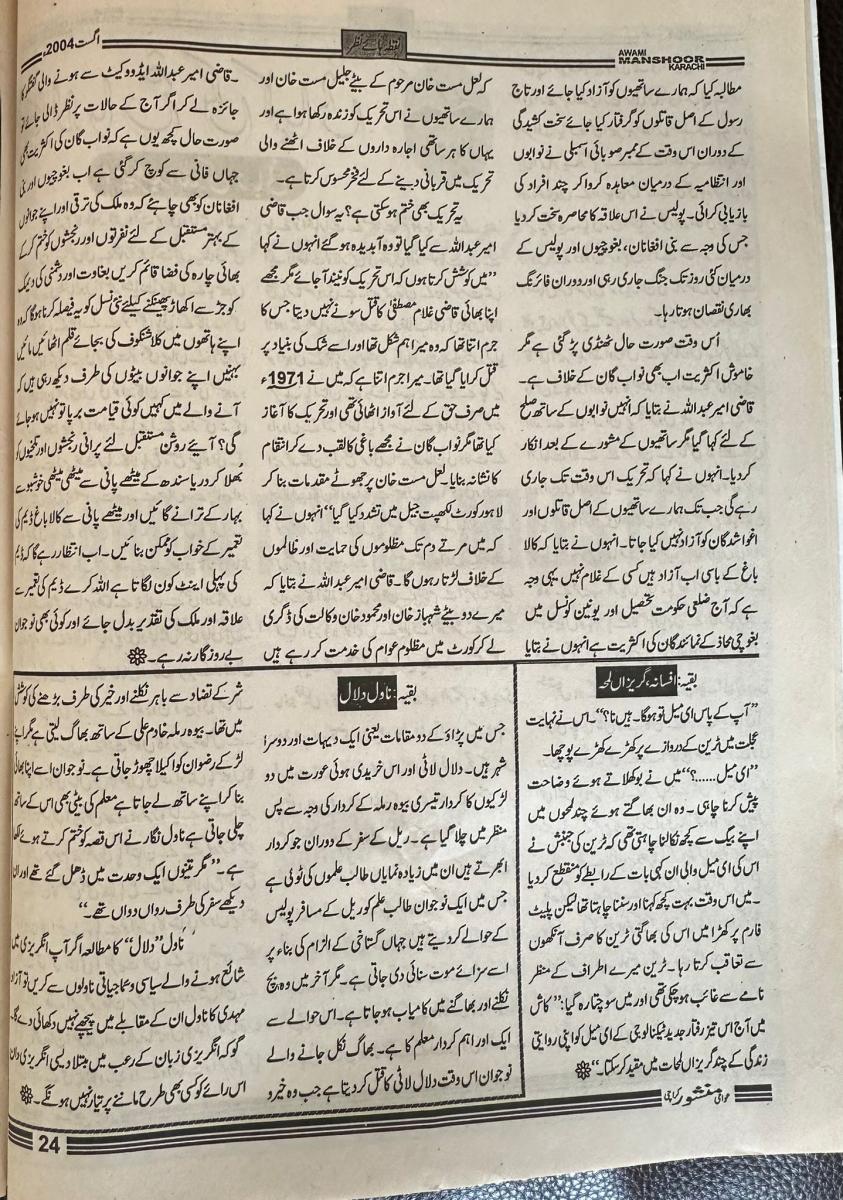 AWAMI
MANSHOOR
KARACHI
نقطہ ہائے نظر
اگست 2004ء
مطالبہ کیا کہ ہمارے ساتھیوں کو آزاد کیا جائے اور تاج
رسول کے اصل قاتلوں کو گرفتار کیا جائے سخت کشیدگی
کے دوران اس وقت کے ممبر صوبائی اسمبلی نے نوابوں
اور انتظامیہ کے درمیان معاہدہ کروا کر چند افراد کی
بازیابی کرائی۔ پولیس نے اس علاقہ کا محاصرہ سخت کر دیا
جس کی وجہ سے بنی افغانان، بغوچیوں اور پولیس کے
درمیان کئی روز تک جنگ جاری رہی اور دوران فائرنگ
بھاری نقصان ہوتا رہا۔
اُس وقت صورت حال ٹھنڈی پڑ گئی ہے مگر
خاموش اکثریت اب بھی نواب گان کے خلاف ہے۔
قاضی امیر عبداللہ نے بتایا کہ انہیں نوابوں کے ساتھ صلح
کے لئے کہا گیا مگر ساتھیوں کے مشورے کے بعد انکار
کر دیا۔ انہوں نے کہا کہ تحریک اس وقت تک جاری
رہے گی جب تک ہمارے ساتھیوں کے اصل قاتلوں اور
اغوا شدگان کو آزاد نہیں کیا جاتا۔ انہوں نے بتایا کہ کالا
باغ کے باسی اب آزاد ہیں کسی کے غلام نہیں یہی وجہ
ہے کہ آج ضلعی حکومت تحصیل اور یونین کونسل میں
بغوچی محاذ کے نمائندگان کی اکثریت ہے انہوں نے بتایا
کہ لعل مست خان مرحوم کے بیٹے جلیل مست خان اور
ہمارے ساتھیوں نے اس تحریک کو زندہ رکھا ہوا ہے اور
یہاں کا ہر ساتھی اجارہ داروں کے خلاف اٹھنے والی
تحریک میں قربانی دینے کے لئے فخر محسوس کرتا ہے۔
یہ تحریک بھی ختم ہو سکتی ہے؟ یہ سوال جب قاضی
امیر عبداللہ سے کیا گیا تو وہ آبدیدہ ہو گئے انہوں نے کہا
”میں کوشش کرتا ہوں کہ اس تحریک کو نیند آ جائے مگر مجھے
اپنا بھائی قاضی غلام مصطفیٰ کا قتل سونے نہیں دیتا جس کا
جرم اتنا تھا کہ وہ میرا ہم شکل تھا اور اسے شک کی بنیاد پر
قتل کرایا گیا تھا۔ میرا جرم اتنا ہے کہ میں نے 1971ء
میں صرف حق کے لئے آواز اٹھائی تھی اور تحریک کا آغاز
کیا تھا مگر نواب گان نے مجھے باغی کا لقب دے کر انتقام
کا نشانہ بنایا۔ لعل مست خان پر جھوٹے مقدمات بنا کر
لاہور کورٹ لکھپت جیل میں تشدد کیا گیا“ انہوں نے کہا
کہ میں مرتے دم تک مظلوموں کی حمایت اور ظالموں
کے خلاف لڑتا رہوں گا۔ قاضی امیر عبداللہ نے بتایا کہ
میرے دو بیٹے شہباز خان اور محمود خان وکالت کی ڈگری
لے کر کورٹ میں مظلوم عوام کی خدمت کر رہے ہیں
۔قاضی امیر عبداللہ ایڈووکیٹ سے ہونے والی گفتگو کا
جائزہ لے کر اگر آج کے حالات پر نظر ڈالی جائے تو
صورت حال کچھ یوں ہے کہ نواب گان کی اکثریت بھی
جہاں فانی سے کوچ کر گئی ہے اب بغوچیوں اور بنی
افغانان کو بھی چاہئے کہ وہ ملک کی ترقی اور اپنے جوانوں
کے بہتر مستقبل کے لئے نفرتوں اور رنجشوں کو ختم کر کے
بھائی چارہ کی فضا قائم کریں بغاوت اور دشمنی کی دیمک
کو جڑ سے اکھاڑ پھینکنے کیلئے نئی نسل کو یہ فیصلہ کرنا ہوگا کہ وہ
اپنے ہاتھوں میں کلاشنکوف کی بجائے قلم اٹھائیں مائیں
بہنیں اپنے جوانوں بیٹوں کی طرف دیکھ رہی ہیں کہ
آنے والے میں کہیں کوئی قیامت برپا تو نہیں ہو جائے
گی؟ آیئے روشن مستقبل لئے پرانی رنجشوں اور تلخیوں کو
بُھلا کر دریا سندھ کے میٹھے پانی سے میٹھی میٹھی خوشبو سے
بہار کے ترانے گائیں اور میٹھے پانی سے کالا باغ ڈیم کی
تعمیر کے خواب کو ممکن بنائیں۔ اب انتظار رہے گا کہ ڈیم
کی پہلی اینٹ کون لگاتا ہے اللہ کرے ڈیم کی تعمیر سے
علاقہ اور ملک کی تقدیر بدل جائے اور کوئی بھی نوجوان
بے روزگار نہ رہے۔
بقیہ: افسانہ، گریزاں لمحہ
”آپ کے پاس ای میل تو ہوگا۔ ہیں نا؟“۔ اس نے نہایت
عجلت میں ٹرین کے دروازے پر کھڑے کھڑے پوچھا۔
”ای میل……؟“ میں نے بوکھلاتے ہوئے وضاحت
پیش کرنا چاہی۔ وہ ان بھاگتے ہوئے چند لمحوں میں
اپنے بیگ سے کچھ نکالنا چاہتی تھی کہ ٹرین کی جنبش نے
اس کی ای میل والی ان کہی بات کے رابطے کو منقطع کر دیا
۔ میں اس وقت بہت کچھ کہنا اور سننا چاہتا تھا لیکن پلیٹ
فارم پر کھڑا میں اس کی بھاگتی ٹرین کا صرف آنکھوں
سے تعاقب کرتا رہا۔ ٹرین میرے اطراف کے منظر
نامے سے غائب ہو چکی تھی اور میں سوچتا رہ گیا: ”کاش
میں آج اس تیز رفتار جدید ٹیکنالوجی کے ای میل کو اپنی روایتی
زندگی کے چند گریزاں لمحات میں مقید کر سکتا۔“
بقیہ: ناول دلال
جس میں پڑاؤ کے دو مقامات یعنی ایک دیہات اور دوسرا
شہر ہیں۔ دلال لاٹی اور اس خریدی ہوئی عورت میں دو
لڑکیوں کا کردار تیسری بیوہ رملہ کے کردار کی وجہ سے پس
منظر میں چلا گیا ہے۔ ریل کے سفر کے دوران جو کردار
ابھرتے ہیں ان میں زیادہ نمایاں طالب علموں کی ٹولی ہے
جس میں ایک نوجوان طالب علم کو ریل کے مسافر پولیس
کے حوالے کر دیتے ہیں جہاں گستاخی کے الزام کی بناء پر
اسے سزائے موت سنائی دی جاتی ہے۔ مگر آخر میں وہ بچ
نکلنے اور بھاگنے میں کامیاب ہو جاتا ہے۔ اس حوالے سے
ایک اور اہم کردار معلم کا ہے۔ بھاگ نکل جانے والے
نوجوان اس وقت دلال لاٹی کا قتل کر دیتا ہے جب وہ خیر و
شر کے تضاد سے باہر نکلنے اور خیر کی طرف بڑھنے کی کوشش
میں تھا۔ بیوہ رملہ خادم علی کے ساتھ بھاگ لیتی ہے مگر اپنے
لڑکے رضوان کو اکیلا چھوڑ جاتی ہے۔ نوجوان اسے اپنا بھائی
بنا کر اپنے ساتھ لے جاتا ہے معلم کی بیٹی بھی اس کے ساتھ
چلی جاتی ہے ناول نگار نے اس قصہ کو ختم کرتے ہوئے لکھا
ہے۔ ”مگر تینوں ایک وحدت میں ڈھل گئے تھے اور ان
دیکھے سفر کی طرف رواں دواں تھے۔“
ناول ”دلال“ کا مطالعہ اگر آپ انگریزی میں
شائع ہونے والے سیاسی و سماجیاتی ناولوں سے کریں تو آزاد
مہدی کا ناول ان کے مقابلے میں پیچھے نہیں دکھائی دے گا۔
گو کہ انگریزی زبان کے رعب میں مبتلا دیسی انگریزی دان
اس رائے کو کسی بھی طرح ماننے پر تیار نہیں ہونگے۔
عوامی منشور کراچی
24